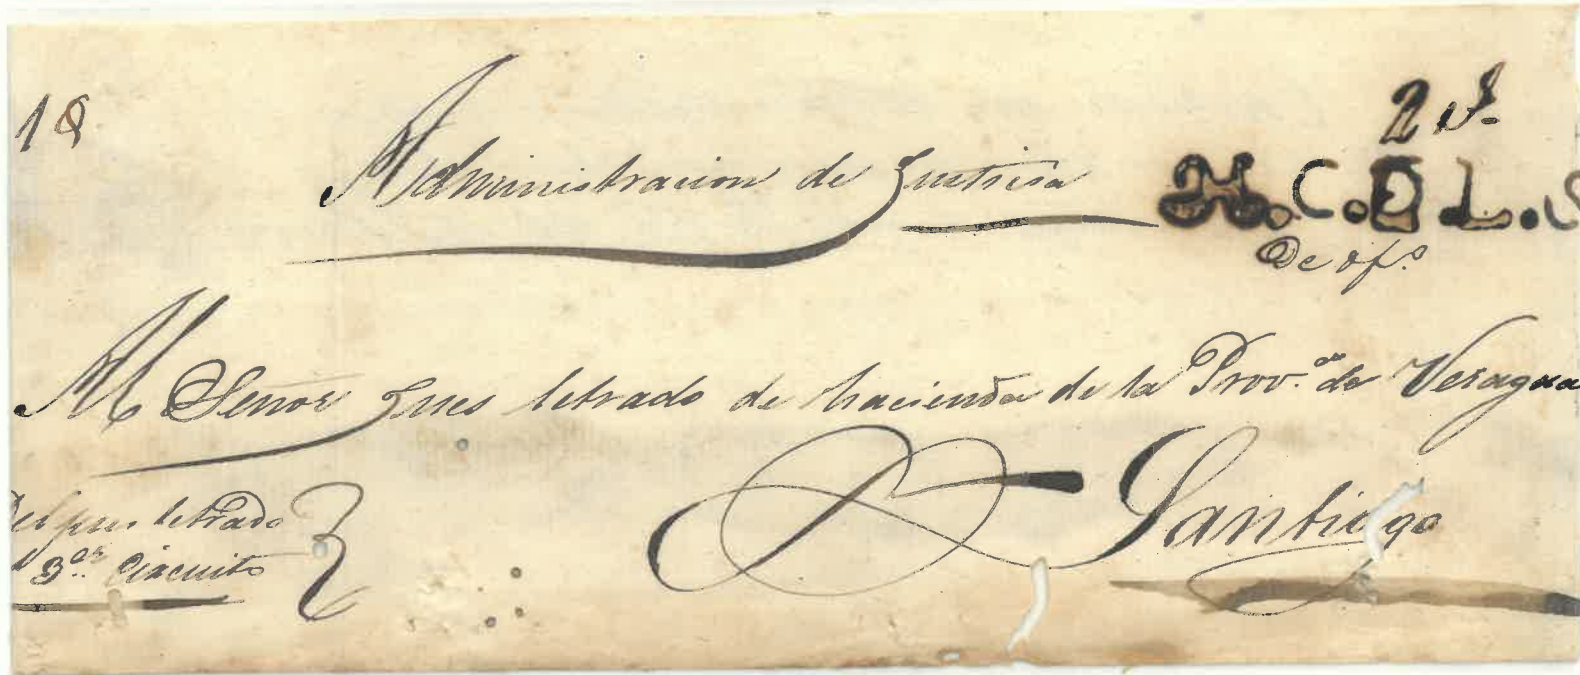 18
2 J.
Administracion de Justicia
H.C.D L.S
De ofº
Al Señor Jues letrado de hacienda de la Prov.ª de Veragua
Santiago
Del jues letrado
3er Circuito